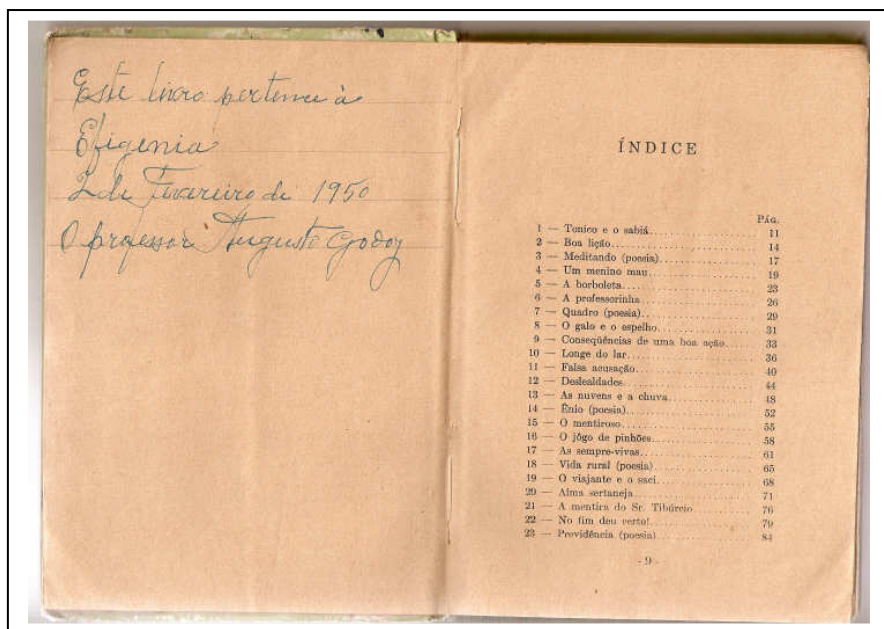 Este livro pertence à
Efigenia
2 de Fevereiro de 1950
O professor Augusto Godoy
ÍNDICE
PÁG.
1 — Tonico e o sabiá 11
2 — Boa lição 14
3 — Meditando (poesia) 17
4 — Um menino mau 19
5 — A borboleta 23
6 — A professorinha 26
7 — Quadro (poesia) 29
8 — O galo e o espelho 31
9 — Conseqüências de uma boa ação 33
10 — Longe do lar 36
11 — Falsa acusação 40
12 — Deslealdades 44
13 — As nuvens e a chuva 48
14 — Ênio (poesia) 52
15 — O mentiroso 55
16 — O jôgo de pinhões 58
17 — As sempre-vivas 61
18 — Vida rural (poesia) 65
19 — O viajante e o saci 68
20 — Alma sertaneja 71
21 — A mentira do Sr. Tibúrcio 76
22 — No fim deu certo! 79
23 — Providência (poesia) 84
- 9 -